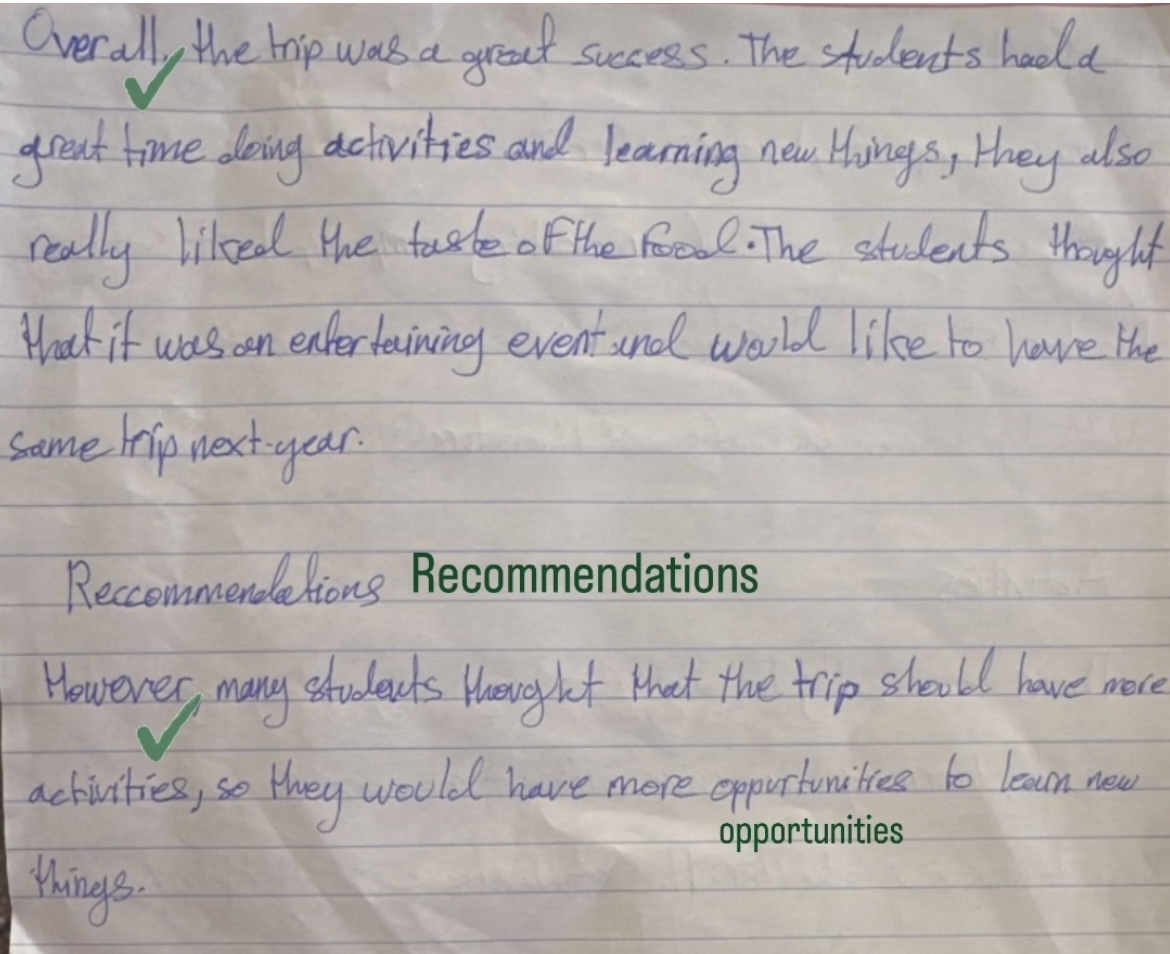 Overall, the trip was a great success. The students had a
great time doing activities and learning new things, they also
really liked the taste of the food. The students thought
that it was an entertaining event and would like to have the
same trip next year.
Reccommendations Recommendations
However, many students thought that the trip should have more
activities, so they would have more oppurtunities to learn new
opportunities
things.